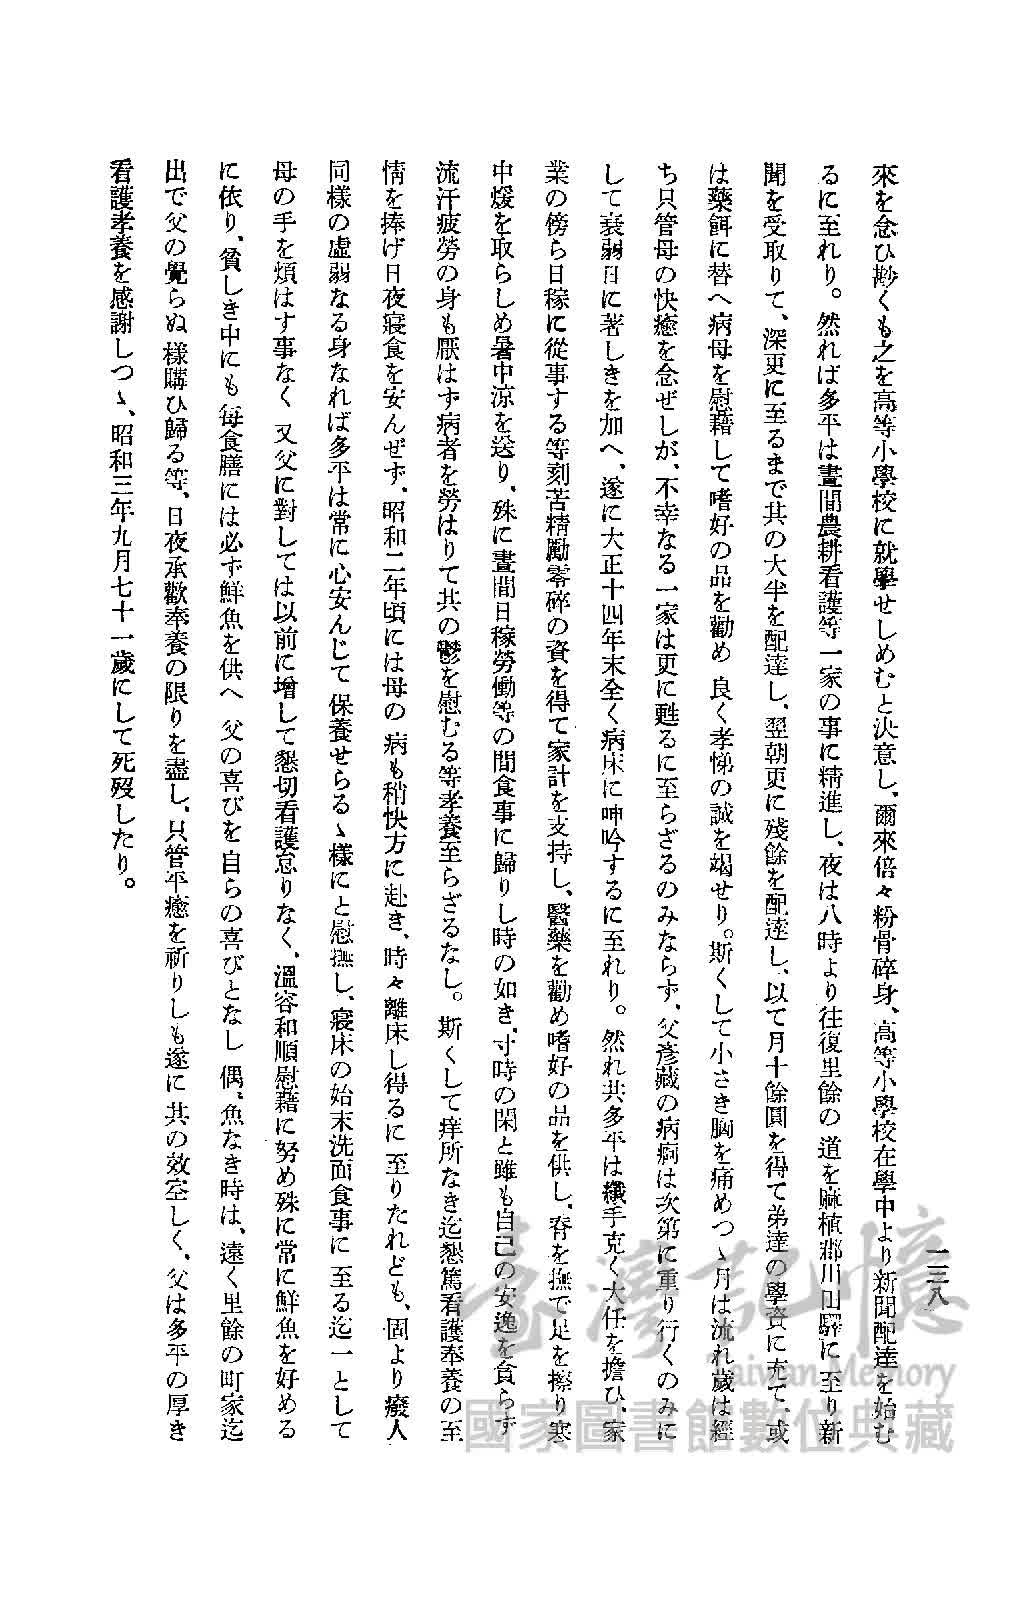 一三八
來を念ひ尠くも之を高等小學校に就學せしめむと決意し、爾來倍々粉骨碎身、高等小學校在學中より新聞配達を始む
るに至れり。然れば多平は晝間農耕看護等一家の事に精進し、夜は八時より往復里餘の道を麻植郡川田驛に至り新
聞を受取りて、深更に至るまで其の大半を配達し、翌朝更に殘餘を配達し、以て月十餘圓を得て弟達の學資に充て、或
は藥餌に替へ病母を慰藉して嗜好の品を勸め良く孝悌の誠を竭せり。斯くして小さき胸を痛めつゝ月は流れ歲は經
ち只管母の快癒を念ぜしが、不幸なる一家は更に甦るに至らざるのみならず、父彥藏の病痾は次第に重り行くのみに
して衰弱日に著しきを加へ、遂に大正十四年末全く病床に呻吟するに至れり。然れ共多平は纖手克く大任を擔ひ、家
業の傍ら日稼に從事する等刻苦精勵零碎の資を得て家計を支持し、醫藥を勸め嗜好の品を供し、脊を撫で足を擦り寒
中煖を取らしめ暑中涼を送り、殊に晝間日稼勞働等の間食事に歸りし時の如き、寸時の閑と雖も自己の安逸を貪らず
流汗疲勞の身も厭はず病者を勞はりて其の鬱を慰むる等孝養至らざるなし。斯くして痒所なき迄懇篤看護奉養の至
情を捧げ日夜寢食を安んぜず、昭和二年頃には母の病も稍快方に赴き、時々離床し得るに至りたれども、固より癈人
同樣の虛弱なる身なれば多平は常に心安んじて保養せらるゝ樣にと慰撫し、寢床の始末洗面食事に至る迄一として
母の手を煩はす事なく又父に對しては以前に增して懇切看護怠りなく、溫容和順慰藉に努め殊に常に鮮魚を好める
に依り、貧しき中にも每食膳には必ず鮮魚を供へ父の喜びを自らの喜びとなし偶、魚なき時は、遠く里餘の町家迄
出で父の覺らぬ樣購ひ歸る等、日夜承歡奉養の限りを盡し、只管平癒を祈りしも遂に其の效空しく、父は多平の厚き
看護孝養を感謝しつゝ、昭和三年九月七十一歲にして死歿したり。
臺灣記憶
Taiwan Memory
國家圖書館數位典藏